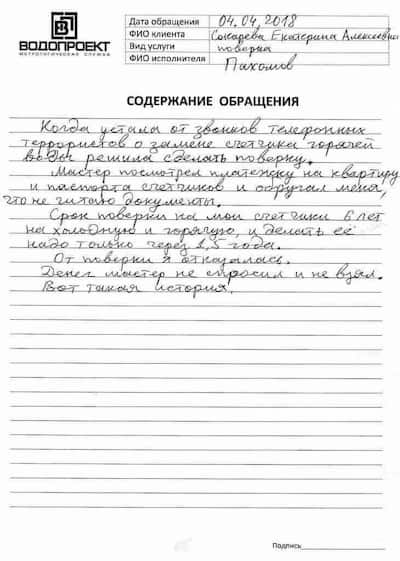 ВОДОПРОЕКТ
МЕТРОЛОГИЧЕСКАЯ СЛУЖБА
Дата обращения 04.04.2018
ФИО клиента Сокарева Екатерина Алексеевна
Вид услуги поверка
ФИО исполнителя Пахомов
СОДЕРЖАНИЕ ОБРАЩЕНИЯ
Когда устала от звонков телефонных
террористов о замене счетчика горячей
воды решила сделать поверку.
Мастер посмотрел платежку на квартиру
и паспорта счетчиков и обругал меня,
что не читаю документы.
Срок поверки на мои счетчики 6 лет
на холодную и горячую, и делать её
надо только через 1,5 года.
От поверки я отказалась.
Денег мастер не спросил и не взял.
Вот такая история.
Подпись